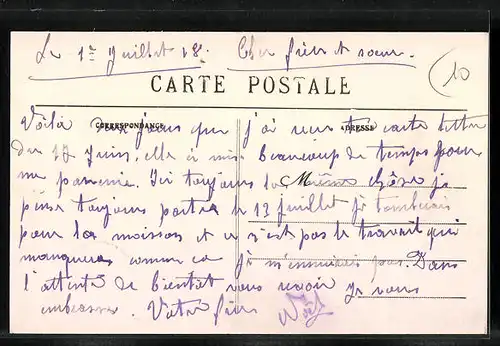 Le 1er Juillet 18. Cher frère et soeur.
10
CARTE POSTALE
CORRESPONDANCE
ADRESSE
Voilà deux jours que j'ai reçu ta carte lettre
du 17 Juin, elle a mis beaucoup de temps pour
me parvenir. Ici toujours la Même chose je
pense toujours partir le 13 juillet je
pour la moisson et ce n'est pas le travail qui
manquera comme ca je m'ennuirais pas. Dans
l'attente de bientot vous revoir je vous
embrasse. Votre frère
Noël